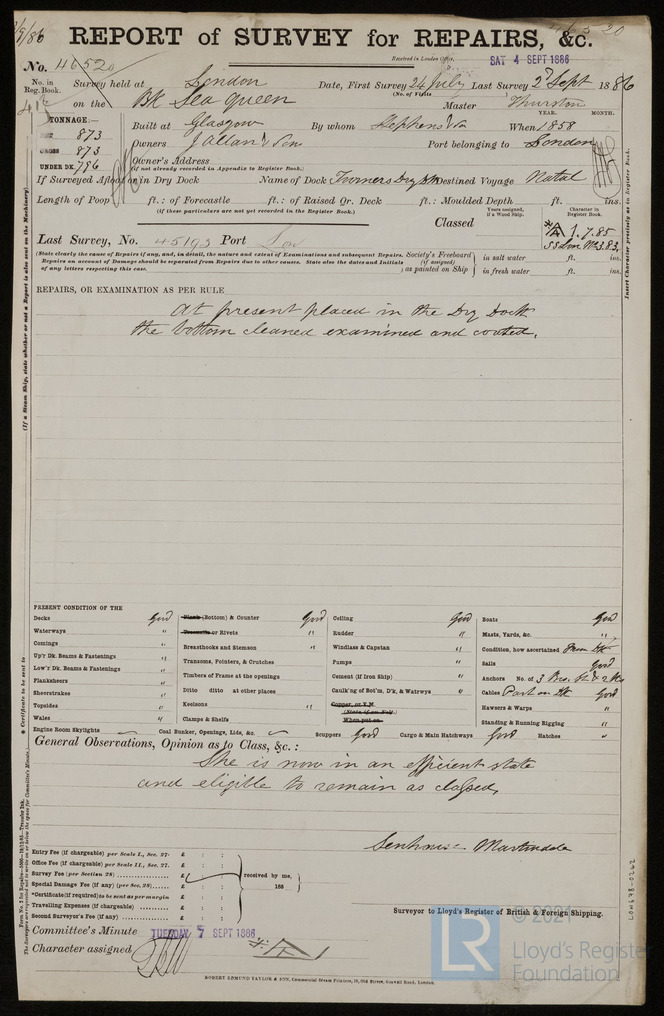 /9/86
REPORT of SURVEY for REPAIRS, &c.
Received in London Office, SAT 4 SEPT 1886
No. 46520
No. in Reg. Book.
Survey held at London Date, First Survey 24 July Last Survey 2d Sept 1886
(No. of Visits
on the BK Sea Queen Master Thurston
TONNAGE:— YEAR. MONTH.
873 Built at Glasgow By whom Stephens & Son When 1858
GROSS 873 Owners J Allan & Son Port belonging to London
UNDER DK. 796 Owner's Address
(if not already recorded in Appendix to Register Book.)
If Surveyed Afloat or in Dry Dock Name of Dock Destined Voyage Natal
Length of Poop ft.: of Forecastle ft.: of Raised Qr. Deck ft.: Moulded Depth ft. ins.
(if these particulars are not yet recorded in the Register Book.)
Classed
Years assigned, if a Wood Ship.
Character in Register Book.
1.7.85
Last Survey, No. 45193 Port Lon
(State clearly the cause of Repairs if any, and, in detail, the nature and extent of Examinations and subsequent Repairs.
Repairs on account of Damage should be separated from Repairs due to other causes. State also the dates and Initials
of any letters respecting this case.
Society's Freeboard (if assigned) as painted on Ship
in salt water ft. ins.
in fresh water ft. ins.
REPAIRS, OR EXAMINATION AS PER RULE
At present placed in the Dry Dock
the bottom cleaned examined and coated.
PRESENT CONDITION OF THE
Decks Good
Waterways "
Comings "
Up'r Dk. Beams & Fastenings "
Low'r Dk. Beams & Fastenings "
Planksheers "
Sheerstrakes "
Topsides "
Wales "
Engine Room Skylights
Plank (Bottom) & Counter Good
Treenails or Rivets "
Breasthooks and Stemson "
Transoms, Pointers, & Crutches
Timbers of Frame at the openings
Ditto ditto at other places
Keelsons "
Clamps & Shelfs
Coal Bunker, Openings, Lids, &c.
Ceiling Good
Rudder "
Windlass & Capstan "
Pumps "
Cement (if Iron Ship) "
Caulk'ng of Bot'm, D'k, & Watrwys "
Copper, or Y.M.
(State if on Felt)
When put on
Scuppers Good Cargo & Main Hatchways Good Hatches "
Boats Good
Masts, Yards, &c. "
Condition, how ascertained From the
Sails Good
Anchors No. of 3 Bro. St & 2 Ks
Cables Part on the Good
Hawsers & Warps "
Standing & Running Rigging "
General Observations, Opinion as to Class, &c.:
She is now in an efficient state
and eligible to remain as classed,
Senhouse Martindale
Entry Fee (if chargeable) per Scale I., Sec. 27. £ : :
Office Fee (if chargeable) per Scale II., Sec. 27. £ : :
Survey Fee (per Section 28) £ : :
Special Damage Fee (if any) (per Sec. 28) £ : :
*Certificate (if required) to be sent as per margin
Travelling Expenses (if chargeable) £ : :
Second Surveyor's Fee (if any) £ : :
received by me,
188
Surveyor to Lloyd's Register of British & Foreign Shipping.
Committee's Minute TUESDAY 7 SEPT 1886
Character assigned
ROBERT EDMUND TAYLOR & SON, Commercial Steam Printers, 19, Old Street, Goswell Road, London.
(If a Steam Ship, state whether or not a Report is also sent on the Machinery)
* Certificate to be sent to
Insert Character precisely as in Register Book.
LON678-0262
© 2021
LR
Lloyd's Register
Foundation